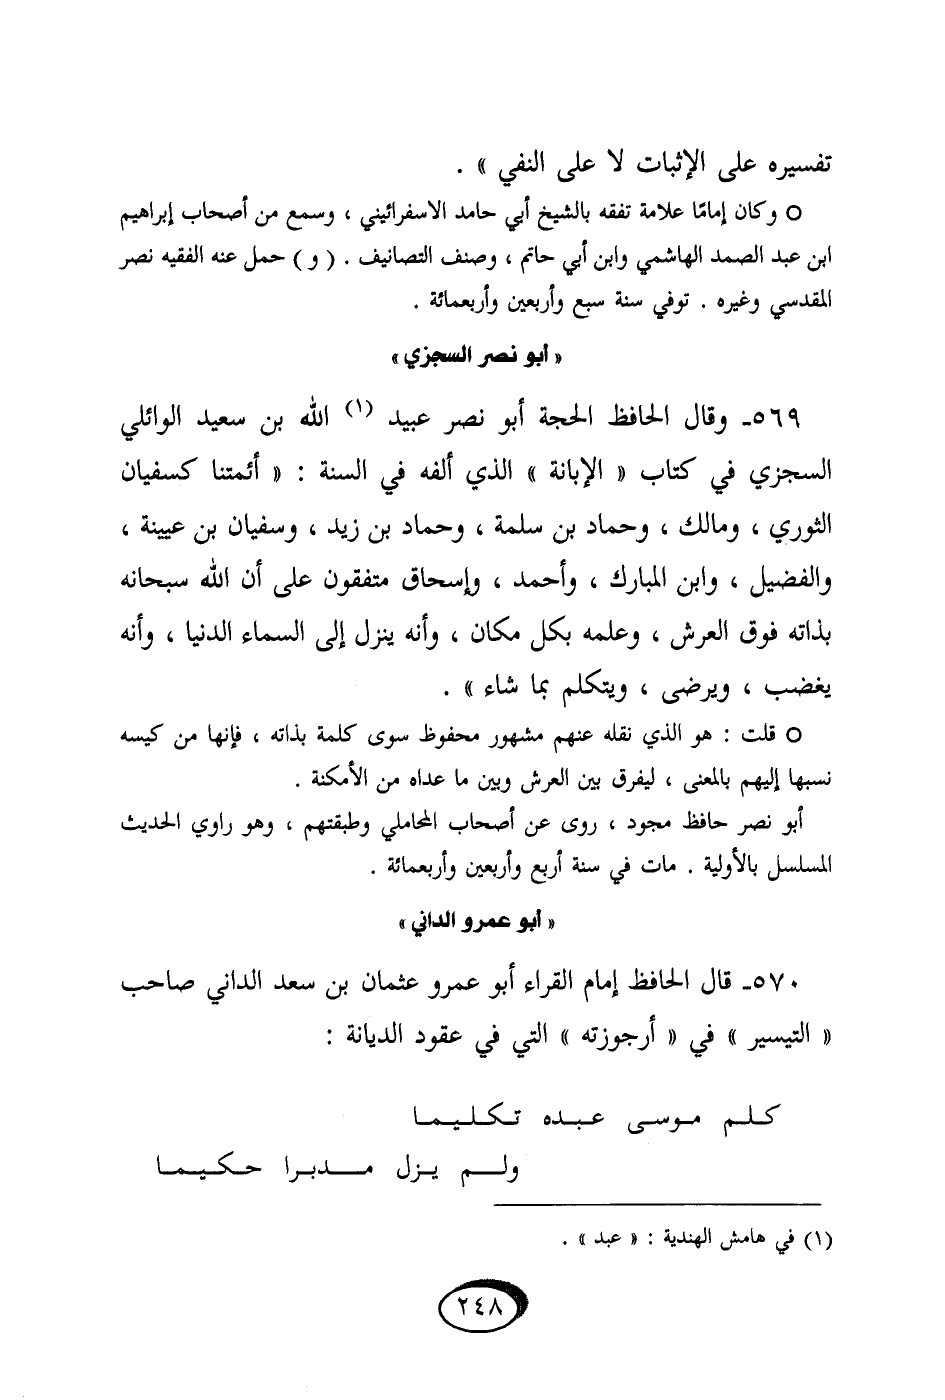 تفسيره على الإثبات لا على النفي » .
○ وكان إمامًا علامة تفقه بالشيخ أبي حامد الاسفرائيني ، وسمع من أصحاب إبراهيم
ابن عبد الصمد الهاشمي وابن أبي حاتم ، وصنف التصانيف . ( و ) حمل عنه الفقيه نصر
المقدسي وغيره . توفي سنة سبع وأربعين وأربعمائة .
« أبو نصر السجزي »
٥٦٩ـ وقال الحافظ الحجة أبو نصر عبيد (١) الله بن سعيد الوائلي
السجزي في كتاب « الإبانة » الذي ألفه في السنة : « أئمتنا كسفيان
الثوري ، ومالك ، وحماد بن سلمة ، وحماد بن زيد ، وسفيان بن عيينة ،
والفضيل ، وابن المبارك ، وأحمد ، وإسحاق متفقون على أن الله سبحانه
بذاته فوق العرش ، وعلمه بكل مكان ، وأنه ينزل إلى السماء الدنيا ، وأنه
يغضب ، ويرضى ، ويتكلم بما شاء » .
○ قلت : هو الذي نقله عنهم مشهور محفوظ سوى كلمة بذاته ، فإنها من كيسه
نسبها إليهم بالمعنى ، ليفرق بين العرش وبين ما عداه من الأمكنة .
أبو نصر حافظ مجود ، روى عن أصحاب المحاملي وطبقتهم ، وهو راوي الحديث
المسلسل بالأولية . مات في سنة أربع وأربعين وأربعمائة .
« أبو عمرو الداني »
٥٧٠ـ قال الحافظ إمام القراء أبو عمرو عثمان بن سعد الداني صاحب
« التيسير » في « أرجوزته » التي في عقود الديانة :
كـلـم مـوسـى عـبـده تـكـلـيـمـا
ولـم يـزل مـدبـرا حـكـيـمـا
(١) في هامش الهندية : « عبد » .
٢٤٨